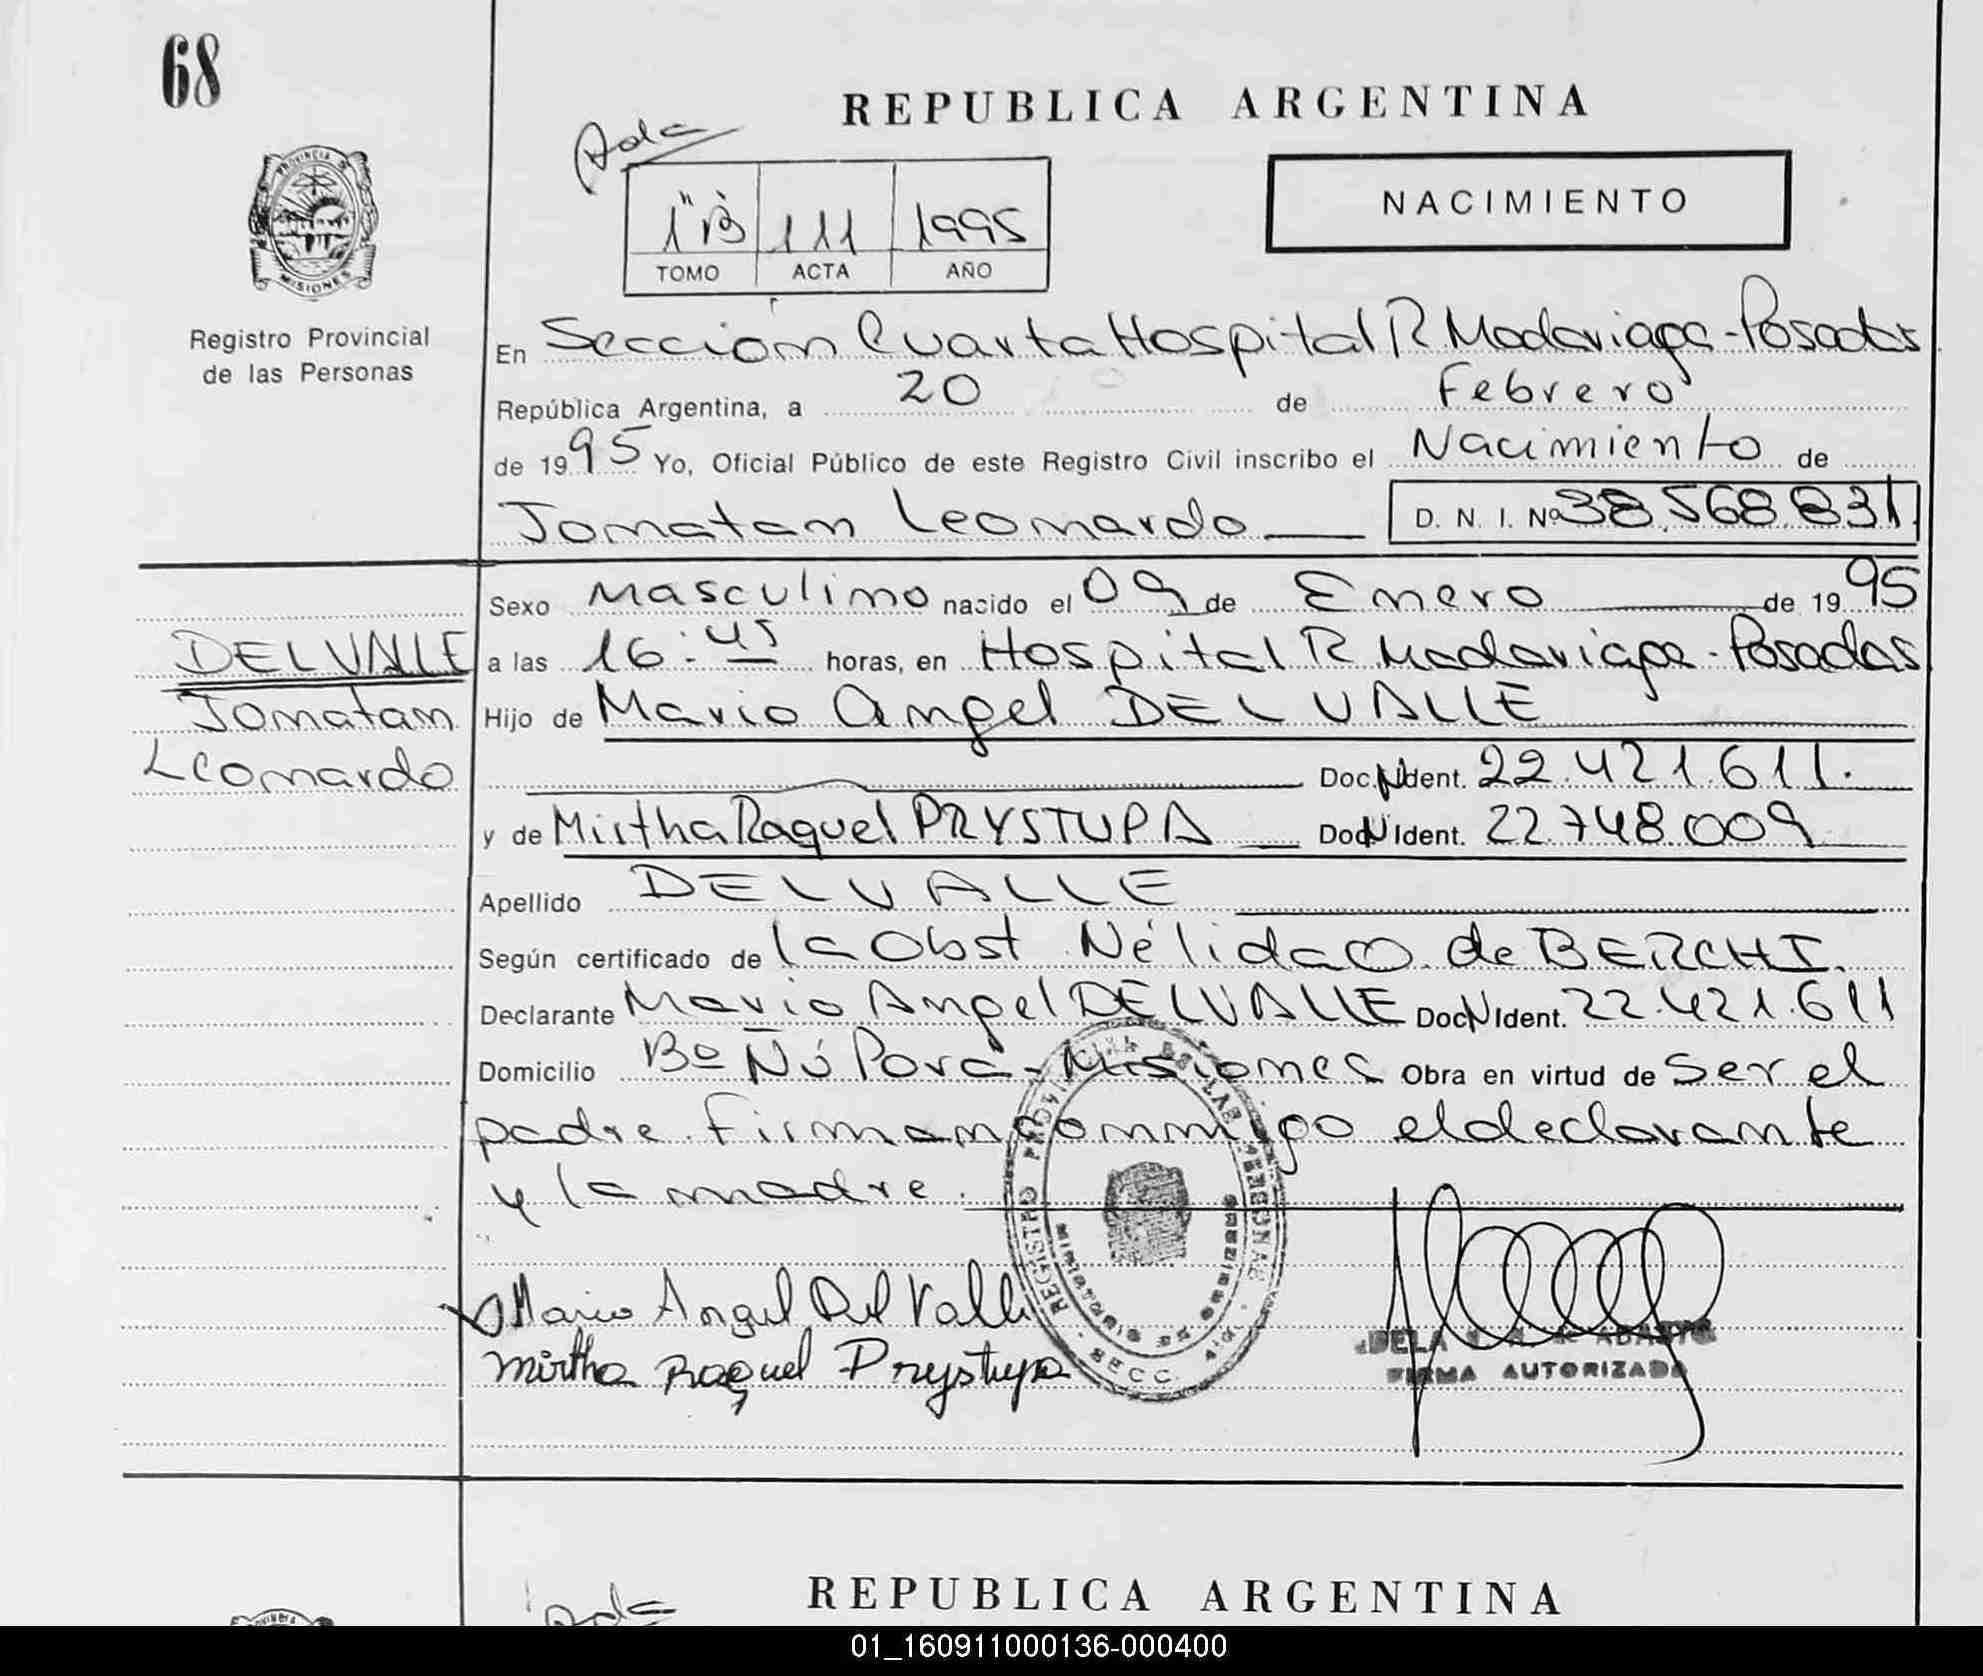 68
REPUBLICA ARGENTINA
PROVINCIA DE
MISIONES
Registro Provincial
de las Personas
NACIMIENTO
1º B 111 1995
TOMO ACTA AÑO
En Sección Cuarta Hospital R Madariaga - Posadas
República Argentina, a 20 de Febrero
de 1995 Yo, Oficial Público de este Registro Civil inscribo el Nacimiento de
Jonatan Leonardo D. N. I. Nº 38.568.831
Sexo Masculino nacido el 09 de Enero de 1995
DELVALLE
Jonatan
Leonardo
a las 16:45 horas, en Hospital R Madariaga - Posadas
Hijo de Mario Angel DELVALLE
Doc. N Ident. 22.421.611.
y de Mirtha Raquel PRYSTUPA Doc N Ident. 22.748.009
Apellido DELVALLE
Según certificado de la Obst Nélida O. de BERCHI.
Declarante Mario Angel DELVALLE Doc N Ident. 22.421.611
Domicilio Bº Ñú Porá - Misiones Obra en virtud de Ser el
padre. Firman conmigo el declarante
y la madre.
Mario Angel Del Valle
Mirtha Raquel Prystupa
REGISTRO PROVINCIAL DE LAS PERSONAS
MISIONES
SECC. 4
FIRMA AUTORIZADA
REPUBLICA ARGENTINA
01_160911000136-000400